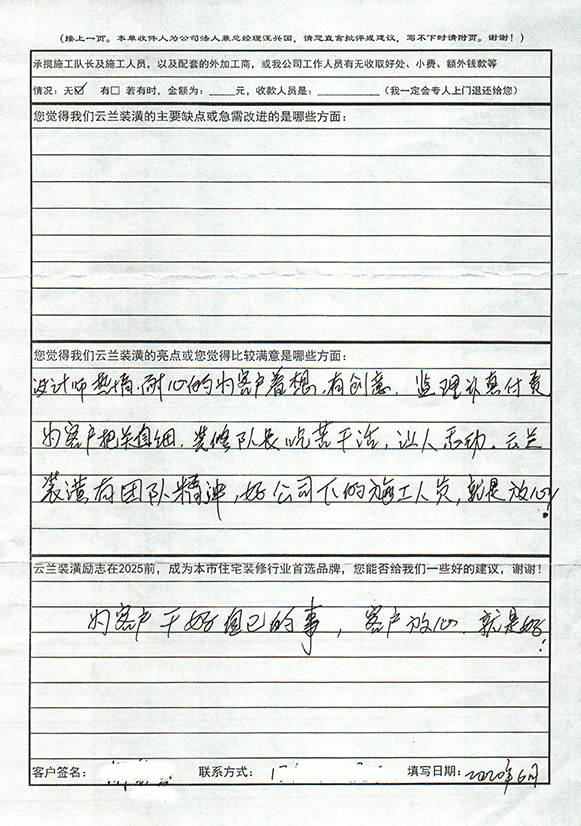 (接上一页。本单收件人为公司法人兼总经理汪兴国，请您直言批评或建议，写不下时请附页。谢谢！)
承揽施工队长及施工人员，以及配套的外加工商，或我公司工作人员有无收取好处、小费、额外钱款等
情况：无☑ 有☐ 若有时，金额为：____元，收款人是：__________（我一定会专人上门退还给您）
您觉得我们云兰装潢的主要缺点或急需改进的是哪些方面：
您觉得我们云兰装潢的亮点或您觉得比较满意是哪些方面：
设计师热情.耐心的为客户着想.有创意.监理认真付责
为客户把关自细.装修队长吃苦干活,让人感动.云兰
装潢有团队精神,好公司下的施工人员,就是放心!
云兰装潢励志在2025前，成为本市住宅装修行业首选品牌，您能否给我们一些好的建议，谢谢！
为客户干好自己的事，客户放心.就是好!
客户签名： 联系方式： 填写日期：2020年6月